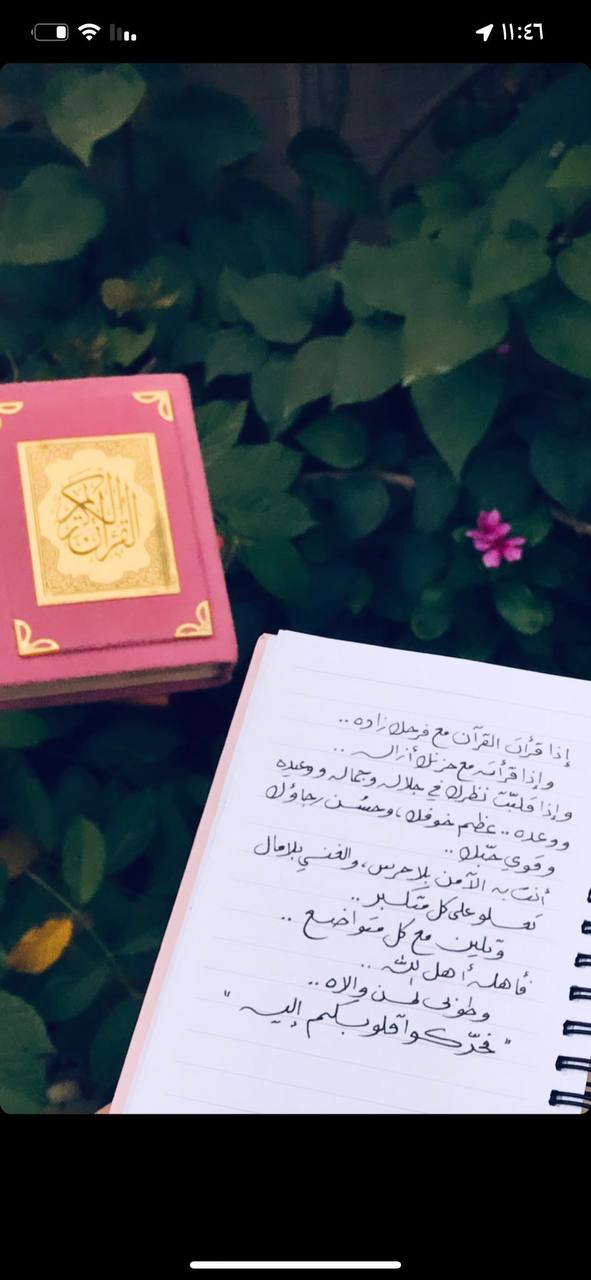 ١١:٤٦
القرآن الكريم
إذا قرأتَ القرآن مع فرحك زاده ..
وإذا قرأته مع حزنك أزاله ..
وإذا قلّبتَ نظرك في جلاله وجماله ووعيده
ووعده .. عظم خوفك، وحسُن رجاؤك
وقوي حبّك ..
أنت به الآمن بلا حرس، والغني بلا مال
تعلو على كل متكبر ..
وتلين مع كل متواضع ..
فأهله أهل الله ..
وطوبى لمن والاه ..
"فحرّكوا قلوبكم إليه"